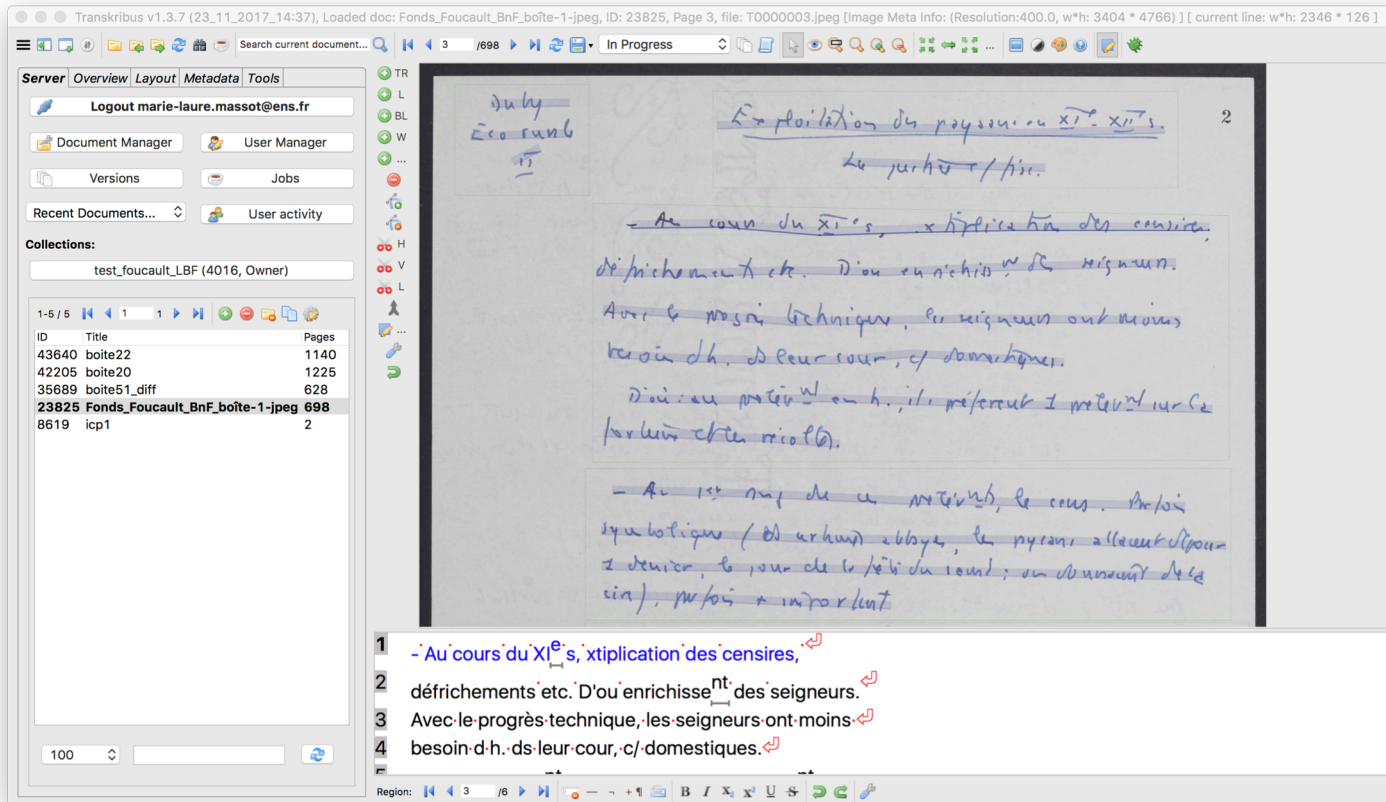 Transkribus v1.3.7 (23_11_2017_14:37), Loaded doc: Fonds_Foucault_BnF_boîte-1-jpeg, ID: 23825, Page 3, file: T0000003.jpeg [Image Meta Info: (Resolution:400.0, w*h: 3404 * 4766) ] [ current line: w*h: 2346 * 126 ]
Search current document...
3 /698
In Progress
Server Overview Layout Metadata Tools
Logout marie-laure.massot@ens.fr
Document Manager User Manager
Versions Jobs
Recent Documents... User activity
Collections:
test_foucault_LBF (4016, Owner)
1-5 / 5 1 1
ID Title Pages
43640 boite22 1140
42205 boite20 1225
35689 boite51_diff 628
23825 Fonds_Foucault_BnF_boîte-1-jpeg 698
8619 icp1 2
100
TR
L
BL
W
...
H
V
L
...
Duby
Eco rurale
II
2
Exploitation du paysan au XIe-XIIe s.
- Au cours du XIe s, xtiplication des censires,
défrichements etc. D'ou enrichisset des seigneurs.
Avec le progrès technique, les seigneurs ont moins
besoin d h. ds leur cour, c/ domestiques.
D'où : au prélèvnt en h., ils préfèrent 1 prélèvnt sur la
et les récoltes.
- Au 1er rang de ce prélèvnt, le cens. Parfois
symbolique ( abbayes, les paysans allaient déposer
1 denier, le jour de la fête du saint ; on donnait de la
cire), parfois + important
1 - Au cours du XIe s, xtiplication des censires,
2 défrichements etc. D'ou enrichissent des seigneurs.
3 Avec le progrès technique, les seigneurs ont moins
4 besoin d h. ds leur cour, c/ domestiques.
Region: 3 /6 B I X₂ X² U S